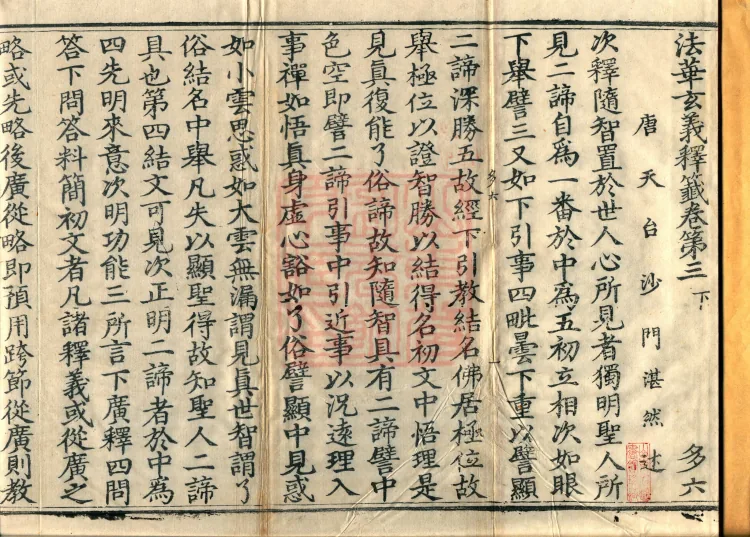 法華玄義釋籤卷第三下 多六
唐天台沙門湛然述
次釋隨智置於世人心所見者獨明聖人所
見二諦自爲一番於中爲五初立相次如眼
下舉譬三又如下引事四毗曇下重以譬顯
二諦深勝五故經下引教結名佛居極位故
多六 一
舉極位以證智勝以結得名初文中悟理是
見真復能了俗諦故知隨智具有二諦譬中
色空即譬二諦引事中引近事以況遠理入
事禪如悟真身虛心豁如了俗譬顯中見惑
如小雲思惑如大雲無漏謂見真世智謂了
俗結名中舉凡失以顯聖得故知聖人二諦
具也第四結文可見次正明二諦者於中爲
四先明來意次明功能三所言下廣釋四問
答下問答料簡初文者凡諸釋義或從廣之
略或先略後廣從略即預用跨節從廣則教